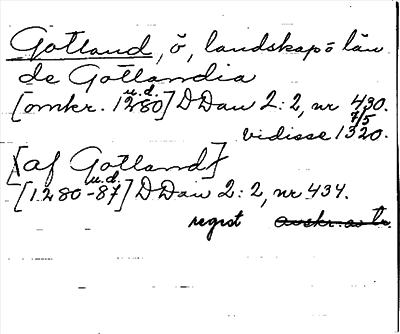 Gotland, ö, landskap o län
de Gotlandia
u.d.
[omkr. 1280] DDan 2:2, nr 430.
7/5
vidisse 1320.
[af Gotland]
u.d.
[1280-87] DDan 2:2, nr 434.
regist avskr. av tr.